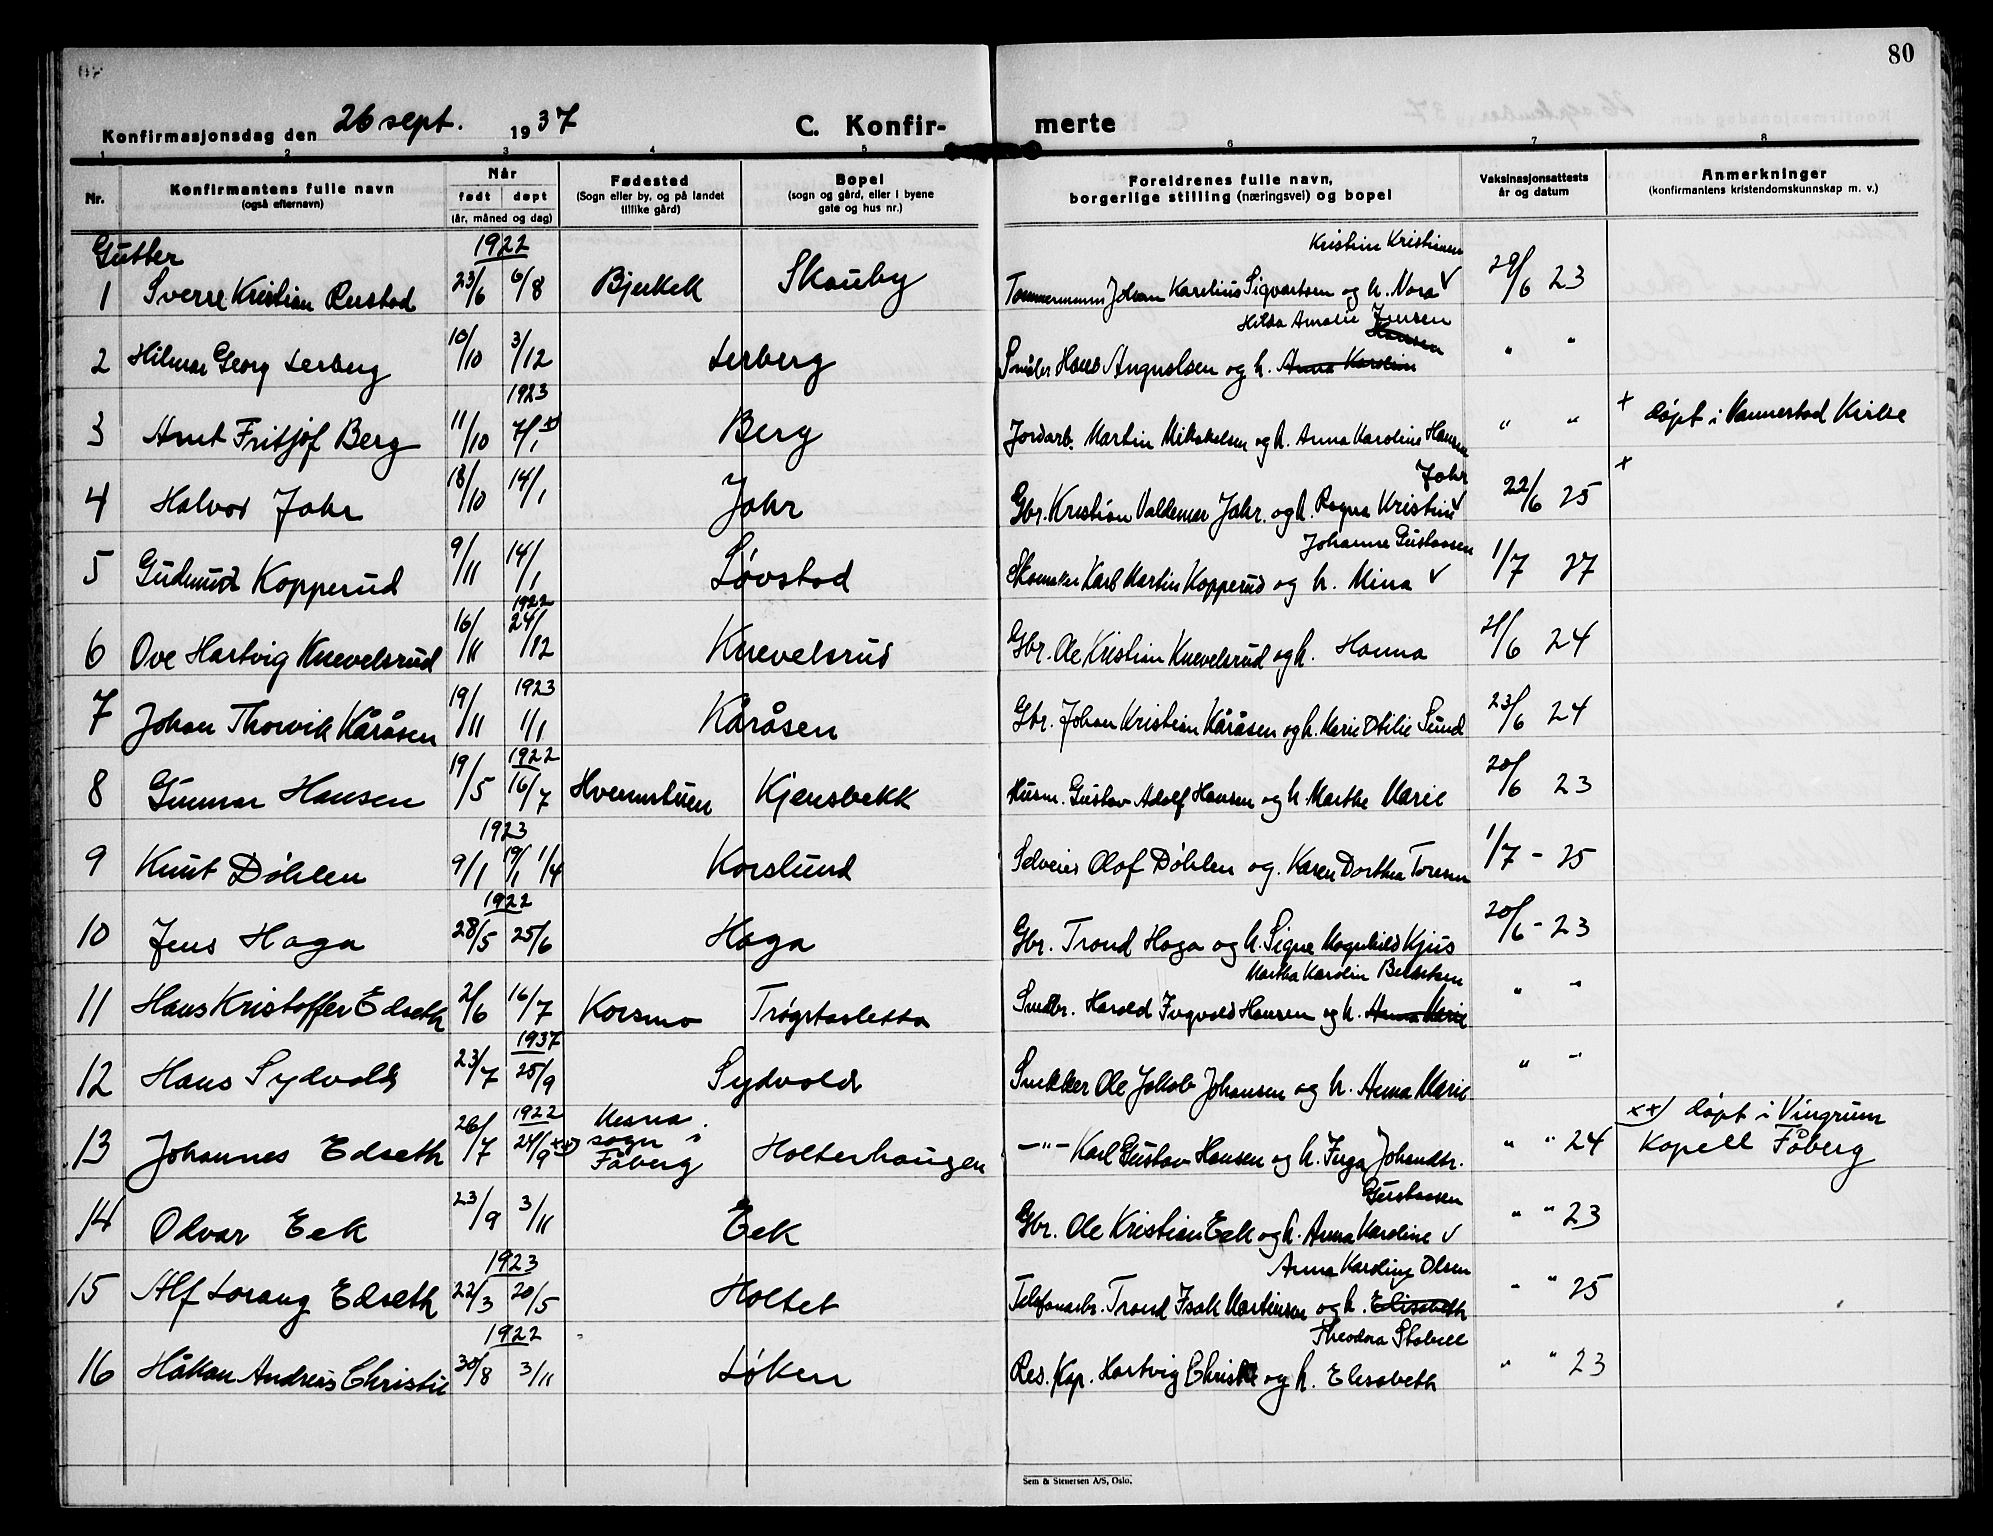 80
Konfirmasjonsdag den 26 sept. 1937 C. Konfir- merte
1 2 3 4 5 6 7 8
Nr. Konfirmantens fulle navn (også efternavn) Når født døpt (år, måned og dag) Fødested (Sogn eller by, og på landet tillike gård) Bopel (sogn og gård, eller i byene gate og hus nr.) Foreldrenes fulle navn, borgerlige stilling (næringsvei) og bopel Vaksinasjonsattests år og datum Anmerkninger (konfirmantens kristendomskunnskap m. v.)
Gutter 1922 Kristine Kristiansen
1 Sverre Kristian Rustad 23/6 6/8 Bjerkek Skauby Tømmermann Johan Karelius Sigvartsen og h. Nora √ 29/6 23
Hilda Amalie Jensen
2 Hilmar Georg Lerberg 10/10 3/12 Lerberg Hans Augustsen og h. Anna Karoline Hansen " "
1923
3 Arnt Fritjof Berg 11/10 7/1 x) Berg Jordarb. Martin Mikkelsen og h. Anna Karoline Hansen " " + døpt i Vannerstad Kirke
Jahr
4 Halvor Jahr 18/10 14/1 Jahr Gbr. Kristian Valdemar Jahr. og h. Ragna Kristine √ 22/6 25 +
Johanne Gustavsen
5 Gudmund Kopperud 9/11 14/1 Løvstad Skomaker Karl Martin Kopperud og h. Mina √ 1/7 27
1922
6 Ove Hartvig Knevelsrud 16/11 24/12 Knevelsrud Gbr. Ole Kristian Knevelsrud og h. Hanna 21/6 24
1923
7 Johan Thorvik Kåråsen 19/11 1/1 Kåråsen Gbr. Johan Kristian Kåråsen og h. Marie Otilie Sund 23/6 24
1922
8 Gunnar Hansen 19/5 16/7 Hvernstuen Kjensbekk Husm. Gustav Adolf Hansen og h. Marthe Marie 20/6 23
1923
9 Knut Døhlen 9/1 19/1 1/4 Korslund Selveier Olaf Døhlen og. Karen Dorthea Toresen 1/7 - 25
1922
10 Jens Haga 28/5 25/6 Haga Gbr. Trond Haga og h. Signe Magnhild Kjus 20/6 - 23
Martha Karolin Berntsen
11 Hans Kristoffer Edseth 2/6 16/7 Korsmo Trøgstadsletta Harald Ingvald Hansen og h. Anna Marie " "
1937
12 Hans Sydvold 23/7 25/9 Sydvold Snekker Ole Jakob Johansen og h. Anna Marie " "
1922
13 Johannes Edseth 26/7 24/9 xx) Mesna sogn i Fåberg Holterhaugen -"- Karl Gustav Hansen og h. Inga Johandtr. " " 24 xx) døpt i Vingrum Kapell Fåberg
Gustavsen
14 Odvar Eek 23/9 3/11 Eek Gbr. Ole Kristian Eek og h. Anna Karoline √ " " 23
1923 Anna Karoline Olsen
15 Alf Lorang Edseth 22/3 20/5 Holtet Telefonarb. Trond Isak Martinsen og h. Elisabeth " " 25
1922 Theodora Stabell
16 Håkon Andreas Christie 30/8 3/11 Løken Res. Kap. Hartvig Christie og h. Elisabeth " " 23
Sem & Stenersen A/S, Oslo.